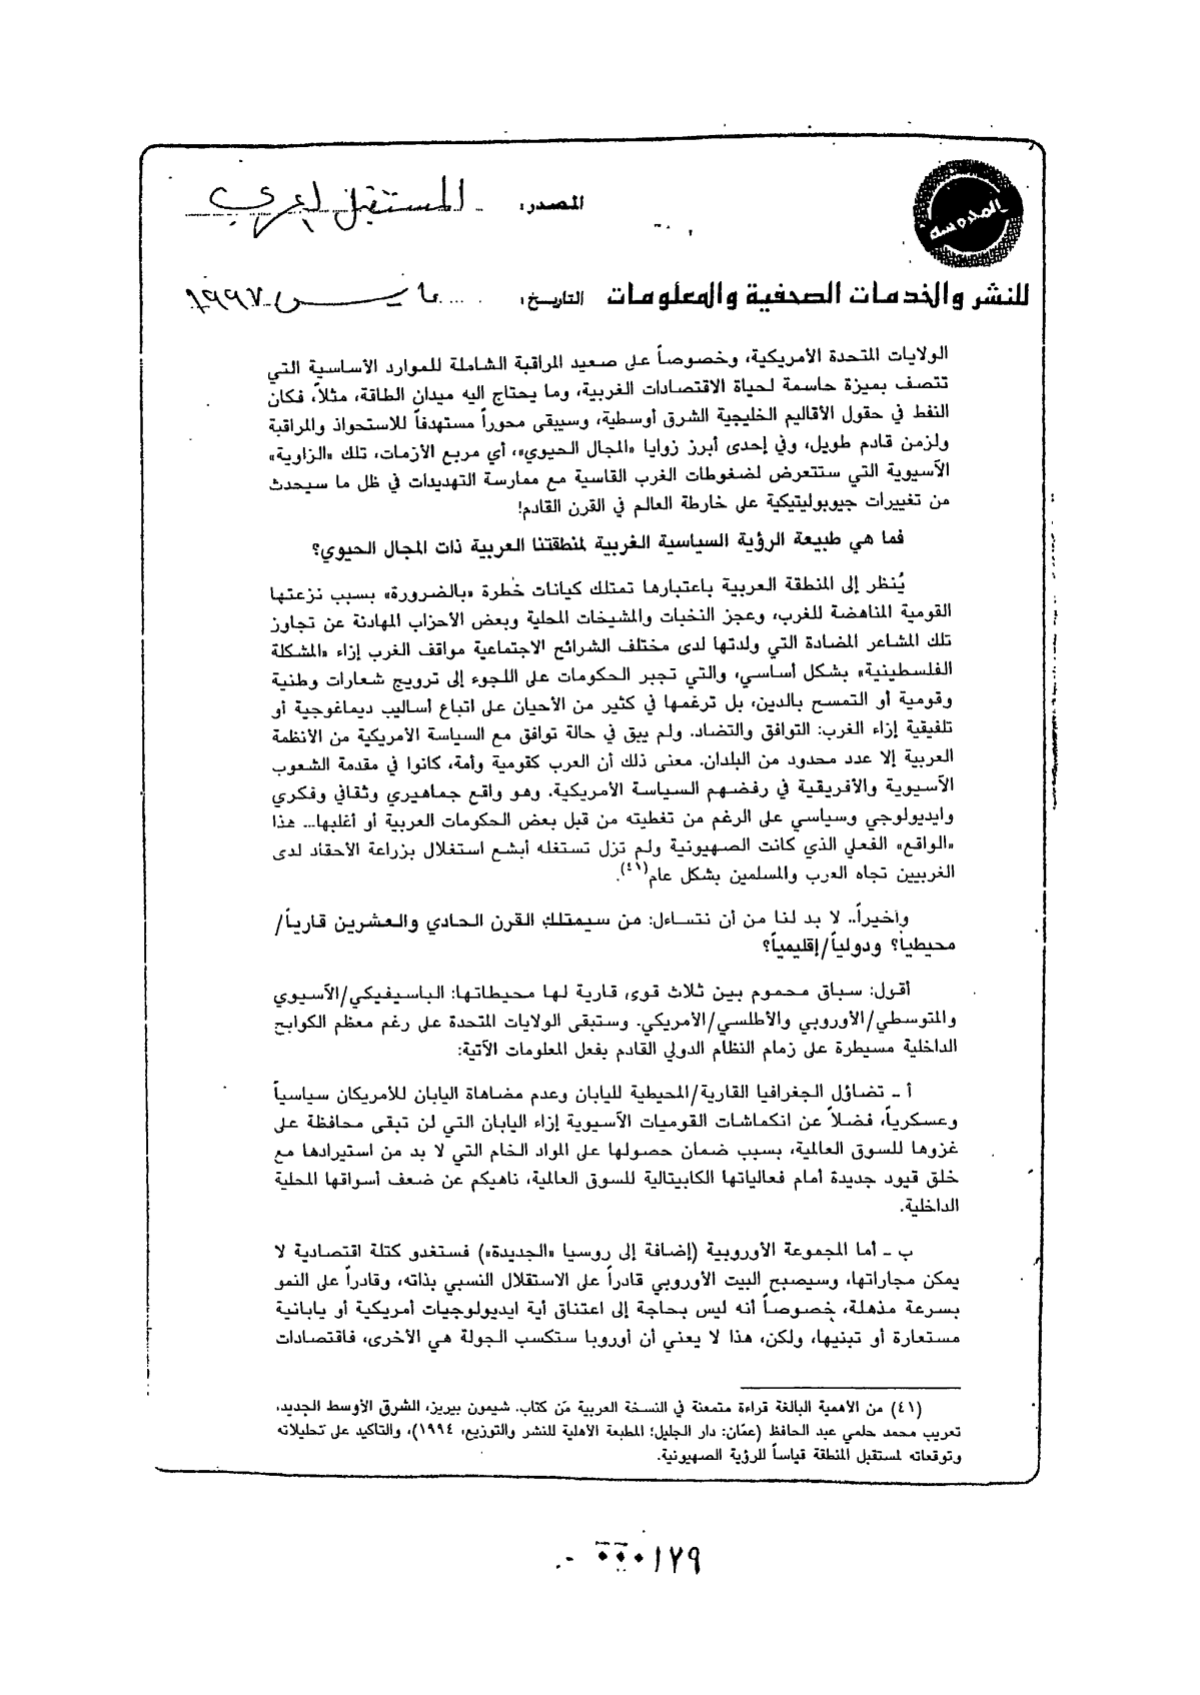 المدرسة
المصدر: المستقبل العربي
للنشر والخدمات الصحفية والمعلومات التاريخ: مايس ١٩٩٧
الولايات المتحدة الأمريكية، وخصوصاً على صعيد المراقبة الشاملة للموارد الأساسية التي
تتصف بميزة حاسمة لحياة الاقتصادات الغربية، وما يحتاج اليه ميدان الطاقة، مثلاً، فكان
النفط في حقول الأقاليم الخليجية الشرق أوسطية، وسيبقى محوراً مستهدفاً للاستحواذ والمراقبة
ولزمن قادم طويل، وفي إحدى أبرز زوايا «المجال الحيوي»، أي مربع الأزمات، تلك «الزاوية»
الآسيوية التي ستتعرض لضغوطات الغرب القاسية مع ممارسة التهديدات في ظل ما سيحدث
من تغييرات جيوبوليتيكية على خارطة العالم في القرن القادم!
فما هي طبيعة الرؤية السياسية الغربية لمنطقتنا العربية ذات المجال الحيوي؟
يُنظر إلى المنطقة العربية باعتبارها تمتلك كيانات خُطرة «بالضرورة» بسبب نزعتها
القومية المناهضة للغرب، وعجز النخبات والمشيخات المحلية وبعض الأحزاب المهادنة عن تجاوز
تلك المشاعر المضادة التي ولدتها لدى مختلف الشرائح الاجتماعية مواقف الغرب إزاء «المشكلة
الفلسطينية» بشكل أساسي، والتي تجبر الحكومات على اللجوء إلى ترويج شعارات وطنية
وقومية أو التمسح بالدين، بل ترغمها في كثير من الأحيان على اتباع أساليب ديماغوجية أو
تلفيقية إزاء الغرب: التوافق والتضاد. ولم يبق في حالة توافق مع السياسة الأمريكية من الأنظمة
العربية إلا عدد محدود من البلدان. معنى ذلك أن العرب كقومية وأمة، كانوا في مقدمة الشعوب
الآسيوية والأفريقية في رفضهم السياسة الأمريكية. وهو واقع جماهيري وثقافي وفكري
وايديولوجي وسياسي على الرغم من تغطيته من قبل بعض الحكومات العربية أو أغلبها... هذا
«الواقع» الفعلي الذي كانت الصهيونية ولم تزل تستغله أبشع استغلال بزراعة الأحقاد لدى
الغربيين تجاه العرب والمسلمين بشكل عام(٤١).
وأخيراً.. لا بد لنا من أن نتساءل: من سيمتلك القرن الحادي والعشرين قارياً/
محيطياً؟ ودولياً/إقليمياً؟
أقول: سباق محموم بين ثلاث قوى، قارية لها محيطاتها: الباسيفيكي/الآسيوي
والمتوسطي/الأوروبي والأطلسي/الأمريكي. وستبقى الولايات المتحدة على رغم معظم الكوابح
الداخلية مسيطرة على زمام النظام الدولي القادم بفعل المعلومات الآتية:
أ ـ تضاؤل الجغرافيا القارية/المحيطية لليابان وعدم مضاهاة اليابان للأمريكان سياسياً
وعسكرياً، فضلاً عن انكماشات القوميات الآسيوية إزاء اليابان التي لن تبقى محافظة على
غزوها للسوق العالمية، بسبب ضمان حصولها على المواد الخام التي لا بد من استيرادها مع
خلق قيود جديدة أمام فعالياتها الكابيتالية للسوق العالمية، ناهيكم عن ضعف أسواقها المحلية
الداخلية.
ب ـ أما المجموعة الأوروبية (إضافة إلى روسيا «الجديدة») فستغدو كتلة اقتصادية لا
يمكن مجاراتها، وسيصبح البيت الأوروبي قادراً على الاستقلال النسبي بذاته، وقادراً على النمو
بسرعة مذهلة، خصوصاً أنه ليس بحاجة إلى اعتناق أية ايديولوجيات أمريكية أو يابانية
مستعارة أو تبنيها، ولكن، هذا لا يعني أن أوروبا ستكسب الجولة هي الأخرى، فاقتصادات
(٤١) من الأهمية البالغة قراءة متمعنة في النسخة العربية من كتاب. شيمون بيريز، الشرق الأوسط الجديد،
تعريب محمد حلمي عبد الحافظ (عمّان: دار الجليل؛ المطبعة الأهلية للنشر والتوزيع، ١٩٩٤)، والتأكيد على تحليلاته
وتوقعاته لمستقبل المنطقة قياساً للرؤية الصهيونية.
٠٠٠١٧٩